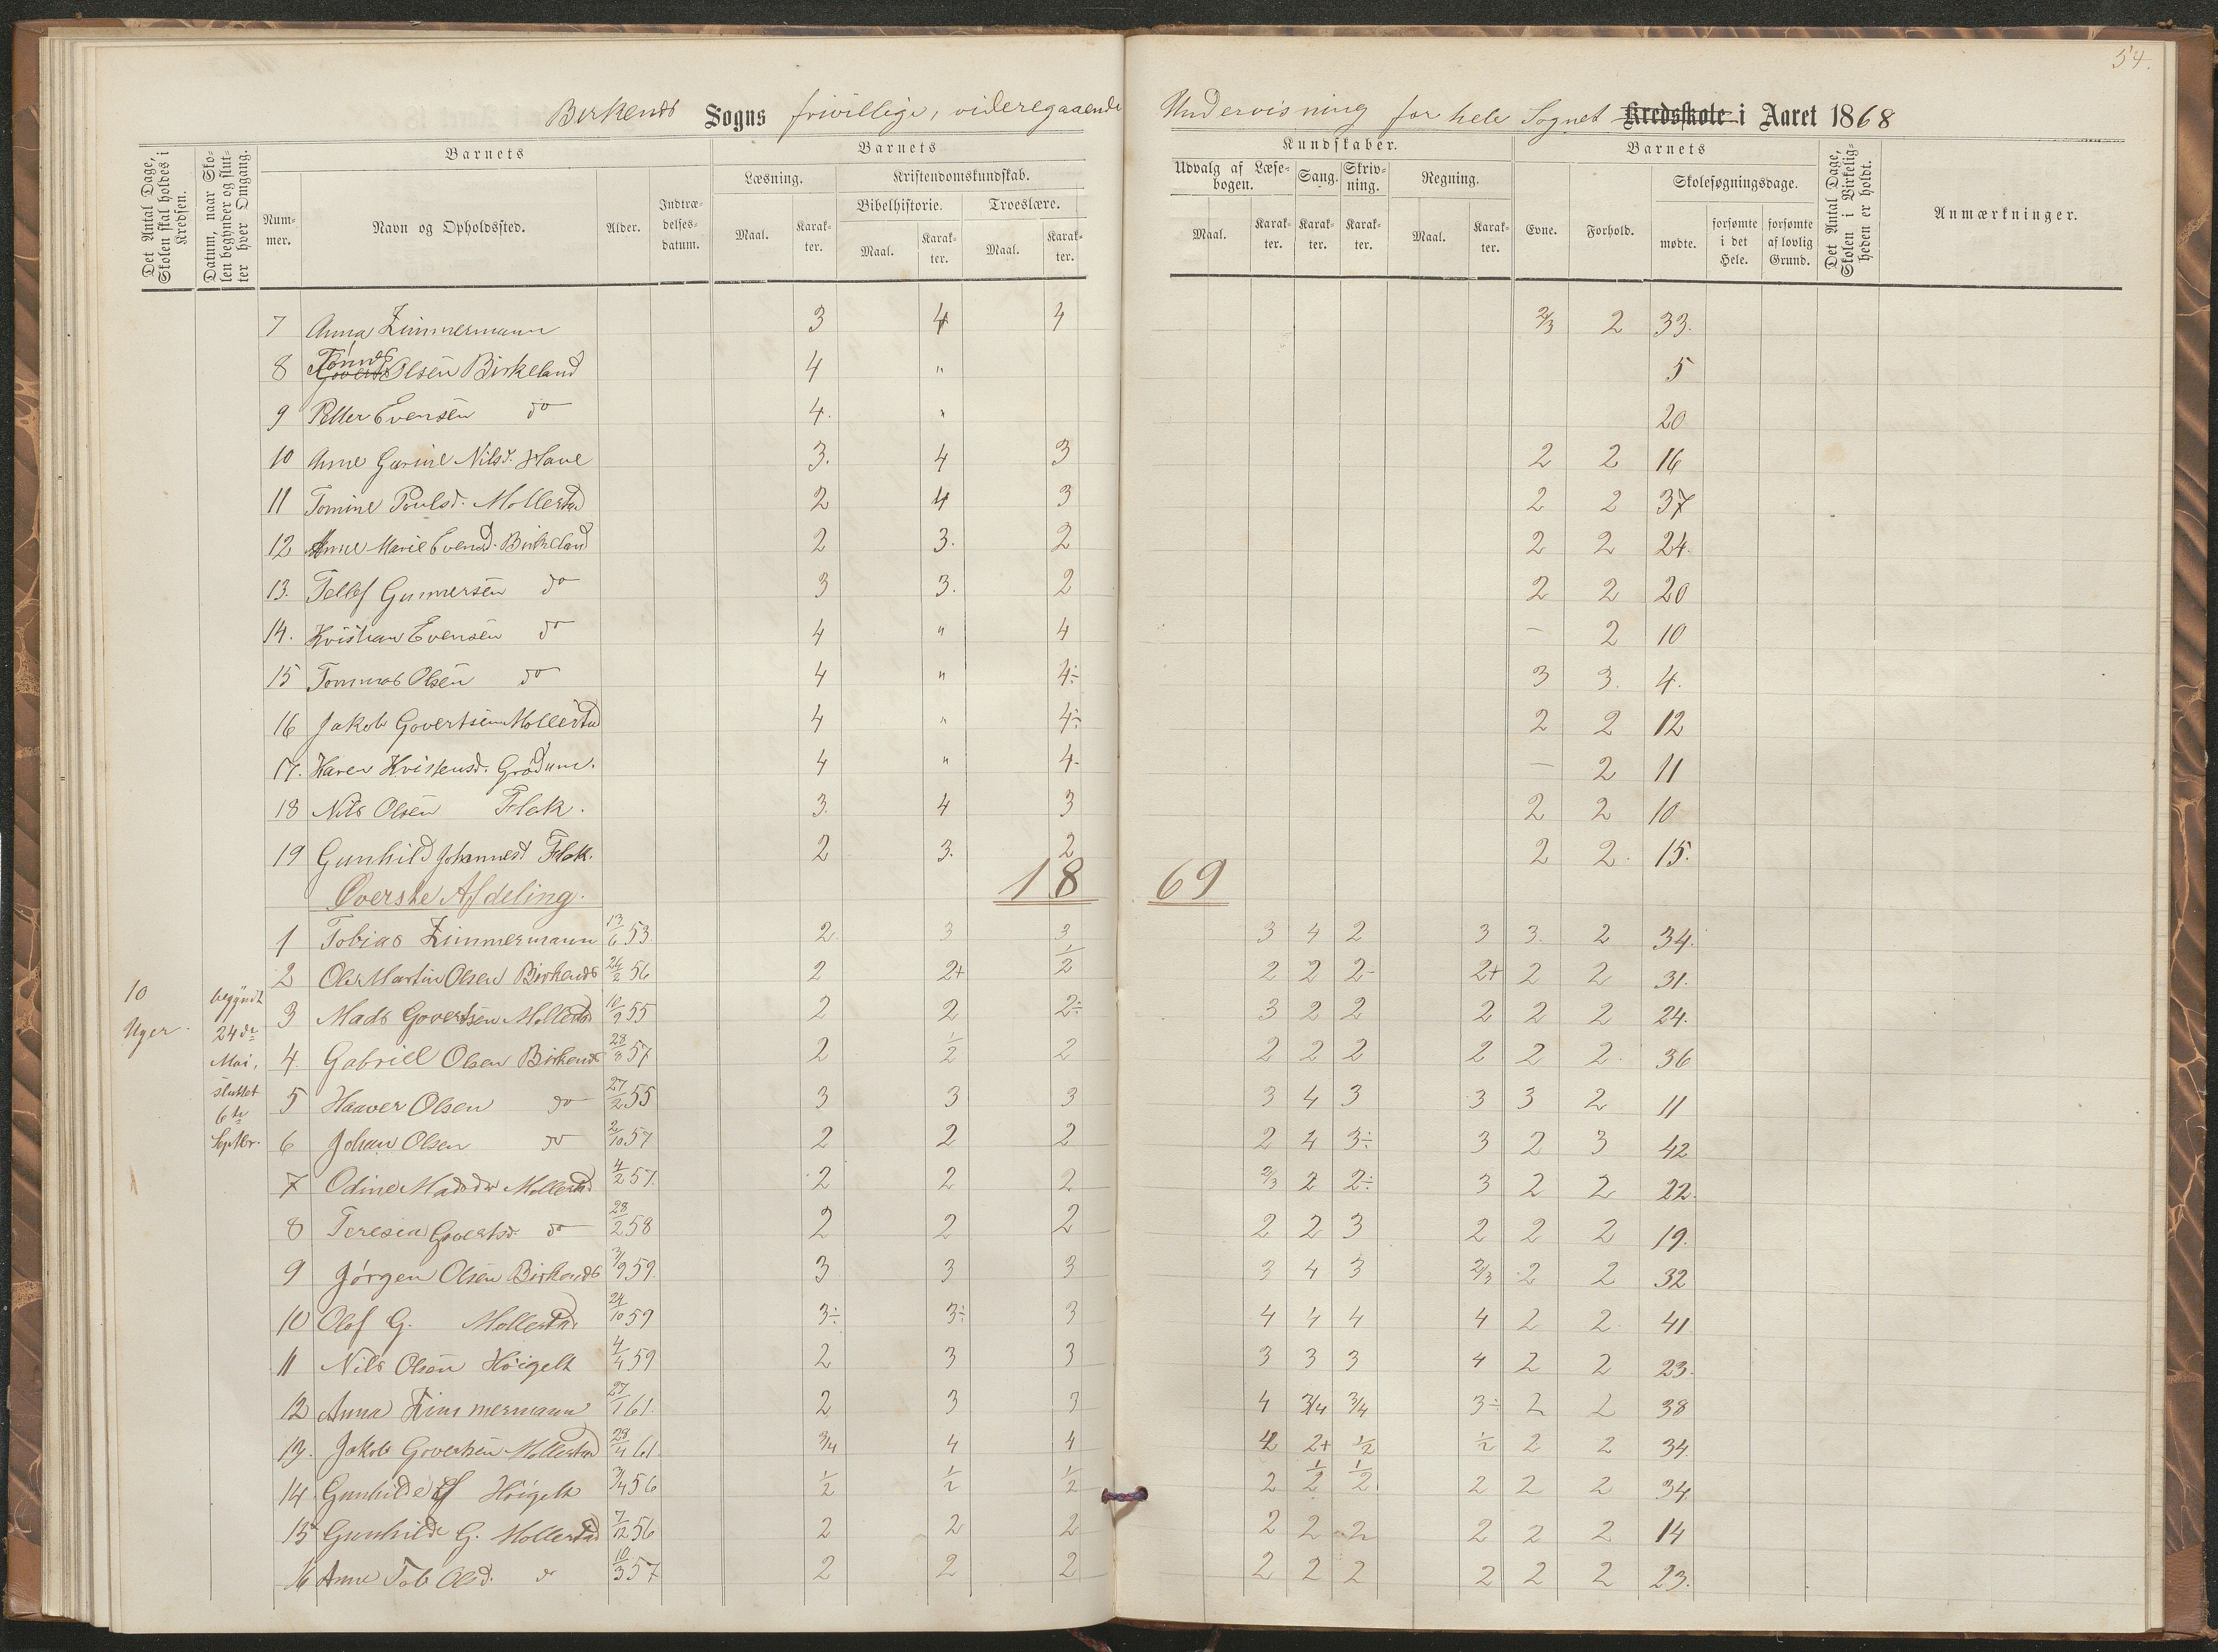 54.
Birkenes Sogns frivillige, videregaaende Undervisning for hele Sognet Kredsskole i Aaret 1868
Det Antal Dage, Skolen skal holdes i Kredsen.
Datum, naar Skolen begynder og slutter hver Omgang.
Barnets
Nummer.
Navn og Opholdssted.
Alder.
Indtrædelsesdatum.
Barnets
Læsning.
Maal.
Karakter.
Kristendomskundskab.
Bibelhistorie.
Maal.
Karakter.
Troeslære.
Maal.
Karakter.
Kundskaber.
Udvalg af Læsebogen.
Maal.
Karakter.
Sang.
Karakter.
Skrivning.
Karakter.
Regning.
Maal.
Karakter.
Barnets
Evne.
Forhold.
Skolesøgningsdage.
mødte.
forsømte i det Hele.
forsømte af lovlig Grund.
Det Antal Dage, Skolen i Virkeligheden er holdt.
Anmærkninger.
7 Anna Zimmermann 3 4 4 2/3 2 33.
8 Tønnes Olsen Birkeland 4 " 5
9 Peller Evensen do 4. " 20
10 Anne Gurine Nilsd. Have 3. 4 3 2 2 16
11 Tomine Poulsd. Mollestad 2 4 3 2 2 37
12 Anne Marie Evensd. Birkeland 2 3. 2 2 2 24.
13. Tellef Gunnersen do 3 3. 2 2 2 20
14. Kristian Evensen do 4 " 4 — 2 10
15 Tommas Olsen do 4 " 4÷ 3 3. 4.
16 Jakob Govertsen Mollestad 4 " 4÷ 2 2 12
17. Karen Kristensd. Grødum. 4 " 4- — 2 11
18 Nils Olsen Flak. 3. 4 3 2 2 10
19 Gunhild Johannesd Flak. 2 3. 2 2 2. 15.
Øverste Afdeling.
18 69
1 Tobias Zimmermann 13/6 53 2 3 3 3 4 2 3 3. 2 34.
2 Ole Martin Olsen Birkenes 24/2 56 2 2+ 1/2 2 2 2- 2+ 2 2 31.
3 Mads Govertsen Mollestad 10/9 55 2 2 2÷ 3 2 2 2 2 2 24.
4. Gabriel Olsen Birkenes 28/8 57 2 1/2 2 2 2 2 2 2 2. 36
5 Haaver Olsen do 27/2 55 3 3 3 3 4 3 3 3 2 11
6 Johan Olsen do 2/10 57 2 2 2 2 4 3÷ 3 2 3 42
7 Odine Madsdr Mollestad 4/2 57. 2 2 2 2/3 2 2÷ 3 2 2 22.
8 Teresia Govertsd. do 28/2 58 2 2 2 2 2 3 2 2 2 19.
9 Jørgen Olsen Birkenes 3/9 59. 3 3 3 3 4 3 2/3 2 2 32
10 Olof G. Mollestad 24/10 59 3÷ 3÷ 3 4 4 4 4 2 2. 41
11 Nils Olsen Høigelt 4/4 59 2 3 3 3 3 3 4 2 2 23.
12 Anna Zimmermann 27/1 61. 2 3 3 4 3/4 3/4 3÷ 2 2 38
13. Jakob Govertsen Mollestad 28/4 61. 3/4 4 4 4 2+ 1/2 1/2 2 2 34.
14 Gunhilde Høigelt 3/4 56 1/2 1/2 1/2 2 1/2 1/2. 2 2 2 34.
15 Gunhilde G. Mollestad 7/12 56 2 2 2 2 2 2 2 2 2 14
16 Anne Tob Olsd. do 10/3 57 2 2 2 2 2 2 2 2 2 23.
10 Uger.
begyndt
24de
Mai,
sluttet
6te
Septbr.